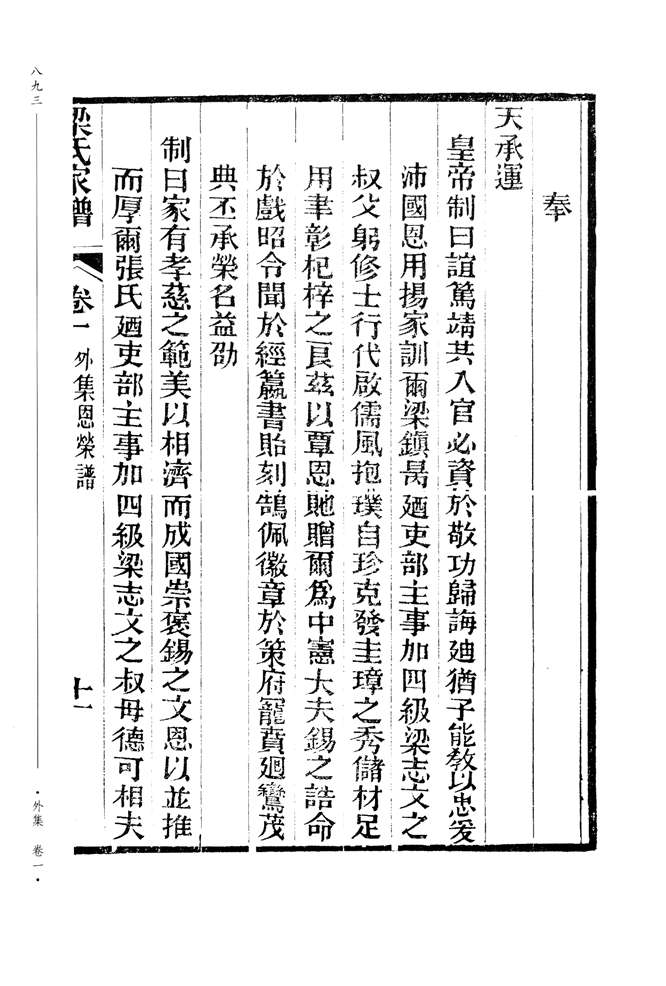 奉
天承運
皇帝制曰誼篤靖共入官必資於敬功歸誨廸猶子能敎以忠爰
沛國恩用揚家訓爾梁鎮昺廼吏部主事加四級梁志文之
叔父躬修士行代啟儒風抱璞自珍克發圭璋之秀儲材足
用聿彰杞梓之良茲以覃恩貤贈爾爲中憲大夫錫之誥命
於戲昭令聞於經籝書貽刻鵠佩徽章於策府寵賁廻鸞茂
典丕承榮名益劭
制曰家有孝慈之範美以相濟而成國崇褒錫之文恩以並推
而厚爾張氏廼吏部主事加四級梁志文之叔母德可相夫
梁氏家譜
卷一
外集恩榮譜
十一
八九三
·外集 卷一·